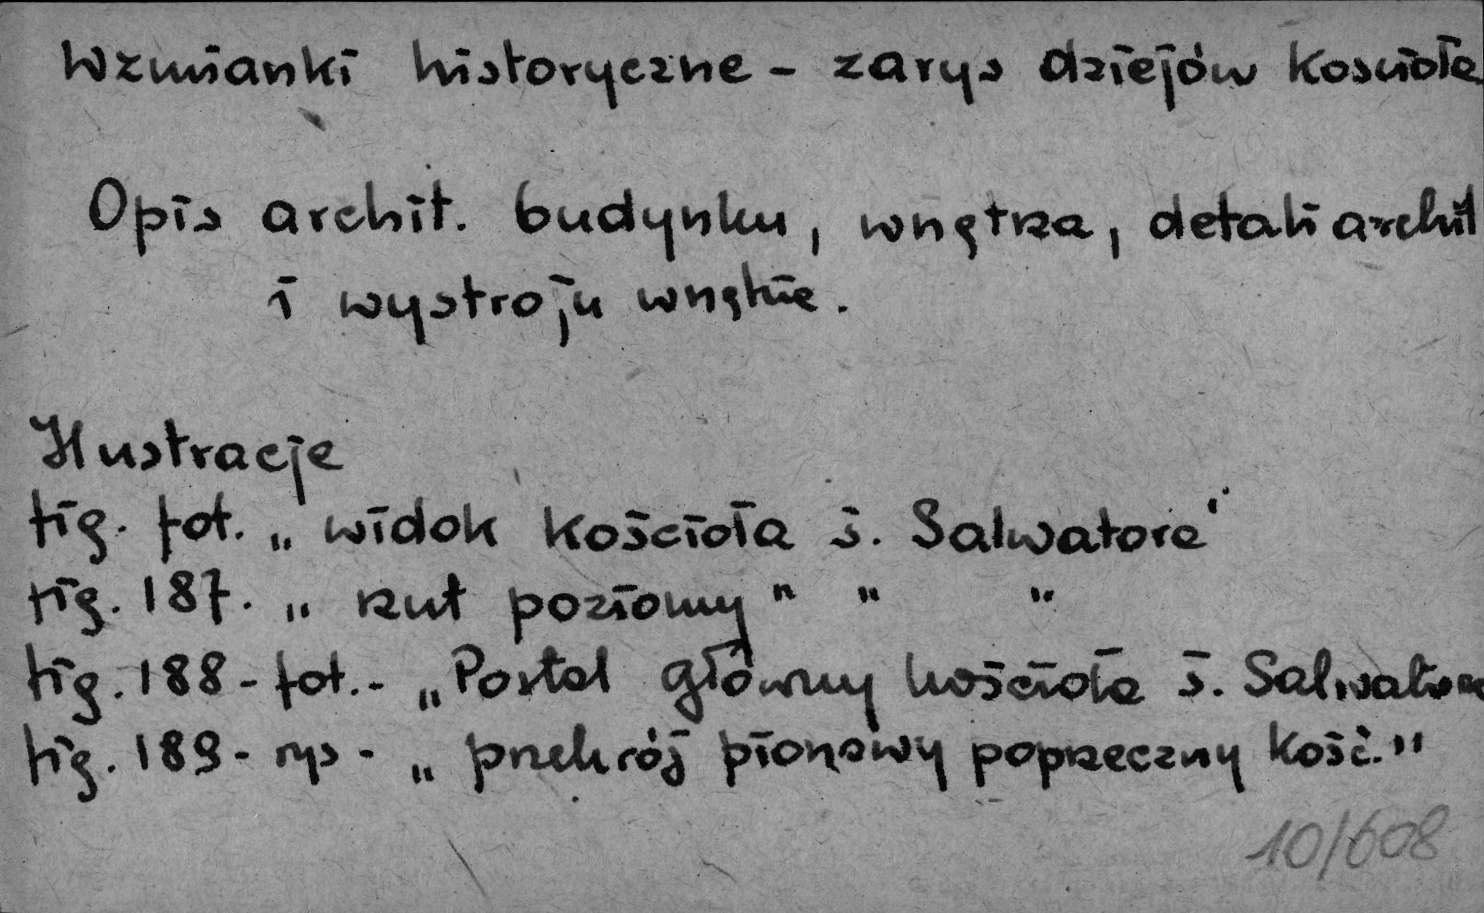 Wzmianki historyczne - zarys dziejów kościoła
Opis archit. budynku, wnętrza, detali archit
i wystroju wnętrze.
Ilustracje
fig. fot. „widok kościoła ś. Salwatora"
fig. 187. „rzut poziomy" " "
fig. 188 - fot. - „Portal główny kościoła ś. Salwatora
fig. 189 - rys - „przekrój pionowy poprzeczny kość."
10/608